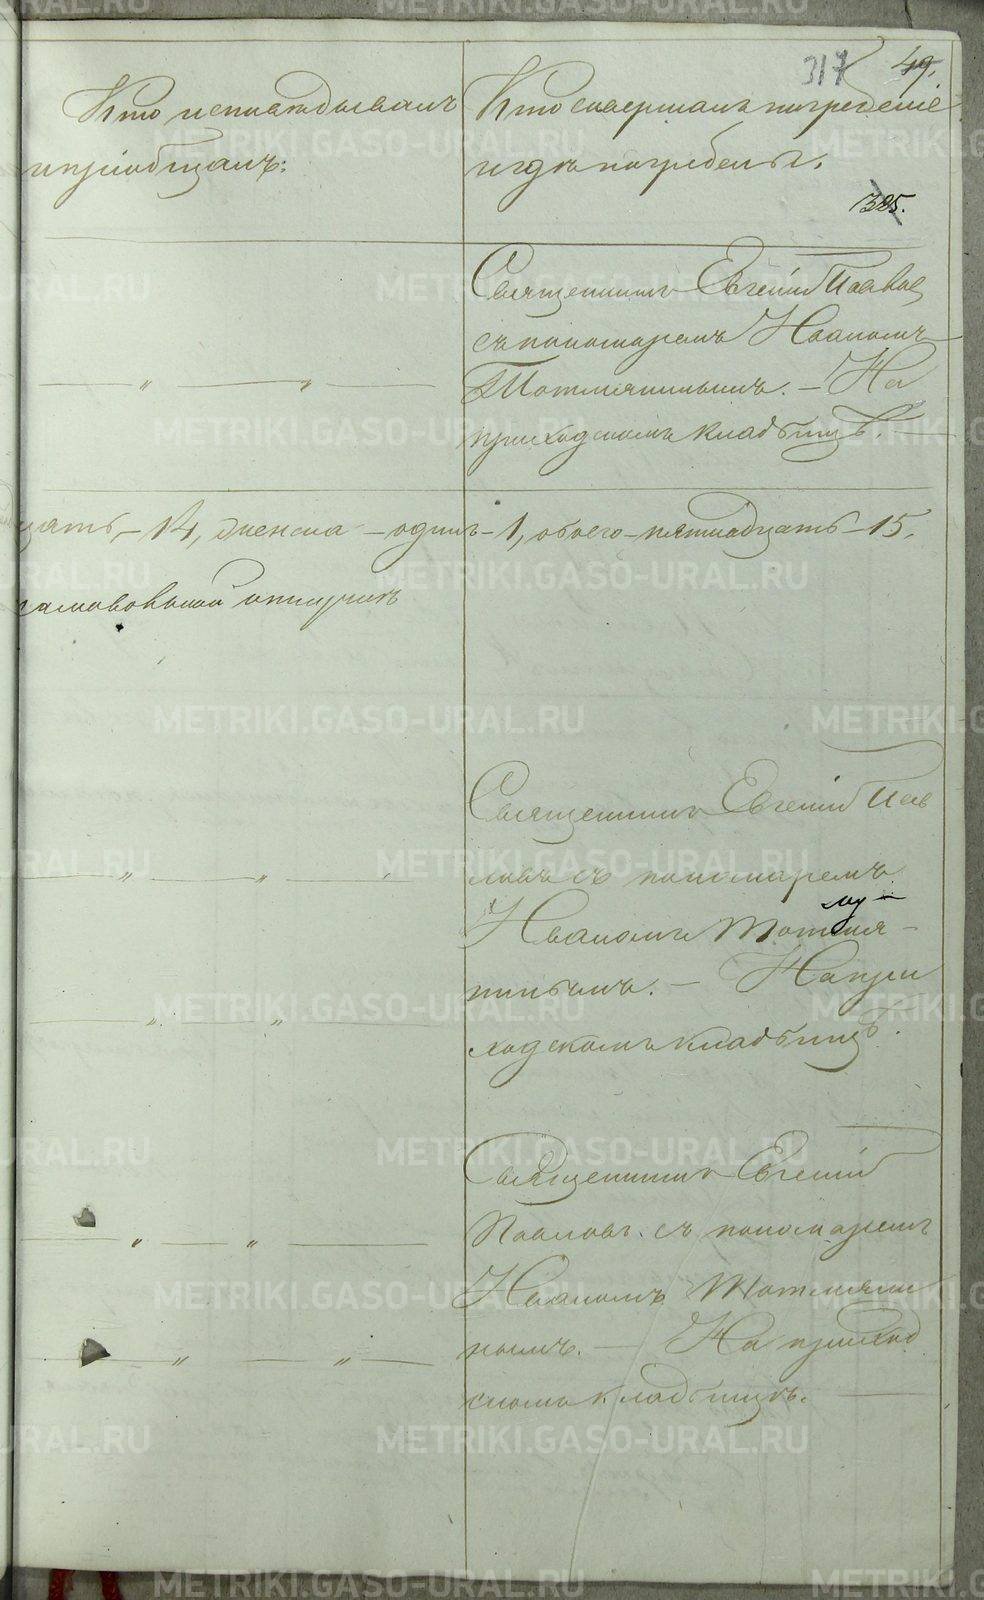 317 49.
Кто исповѣдывалъ
и пріобщалъ:
Кто совершалъ погребеніе
и гдѣ погребены.
385.
Священникъ Евгеній Павлов
съ пономаремъ Иваномъ
Тотмянинымъ. — На
приходскомъ кладбищѣ.
— " — " —
цать — 14, женска — одинъ — 1, обоего — пятнадцать — 15.
Священникъ Евгеній Пав
ловъ съ пономаремъ
Иваномъ Тотмя-
нинымъ. — На при
ходскомъ кладбищѣ.
— " — " —
— " — " —
Священникъ Евгеній
Павловъ съ пономаремъ
Иваномъ Тотмяни
нымъ. — На приход
скомъ кладбищѣ.
— " — " —
— " — " —
METRIKI.GASO-URAL.RU